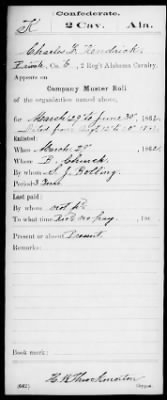 Confederate.
K 2 Cav. Ala.
Charles F. Kendrick
Private, Co. E, 2 Reg't Alabama Cavalry.
Appears on
Company Muster Roll
of the organization named above,
for March 29 to June 30, 1862.
Enlisted:
When March 29, 1862
Where B. Church
By whom S. J. Bolling
Period 3
Last paid:
By whom not pd
To what time Rec'd no pay, 186
Present or absent Present.
Remarks:
Book mark:
(642) Copyist.